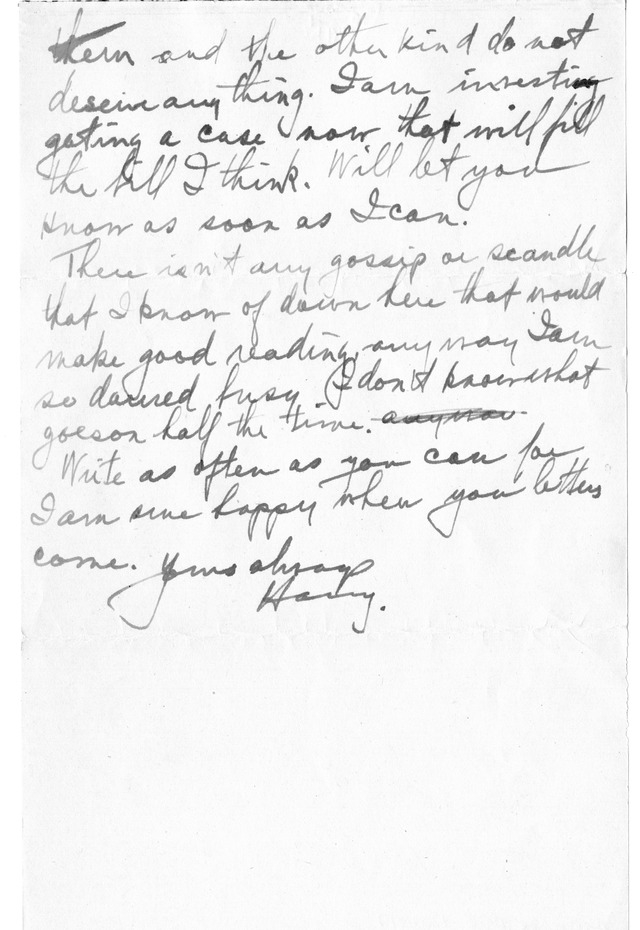 them and the other kind do not
deserve any thing. I am investi
gating a case now that will fill
the bill I think. Will let you
know as soon as I can.
There isn't any gossip or scandle
that I know of down here that would
make good reading, any way I am
so darned busy I don't know what
goes on half the time. anyway.
Write as often as you can for
I am sure happy when you letters
come. Yours always
Harry.